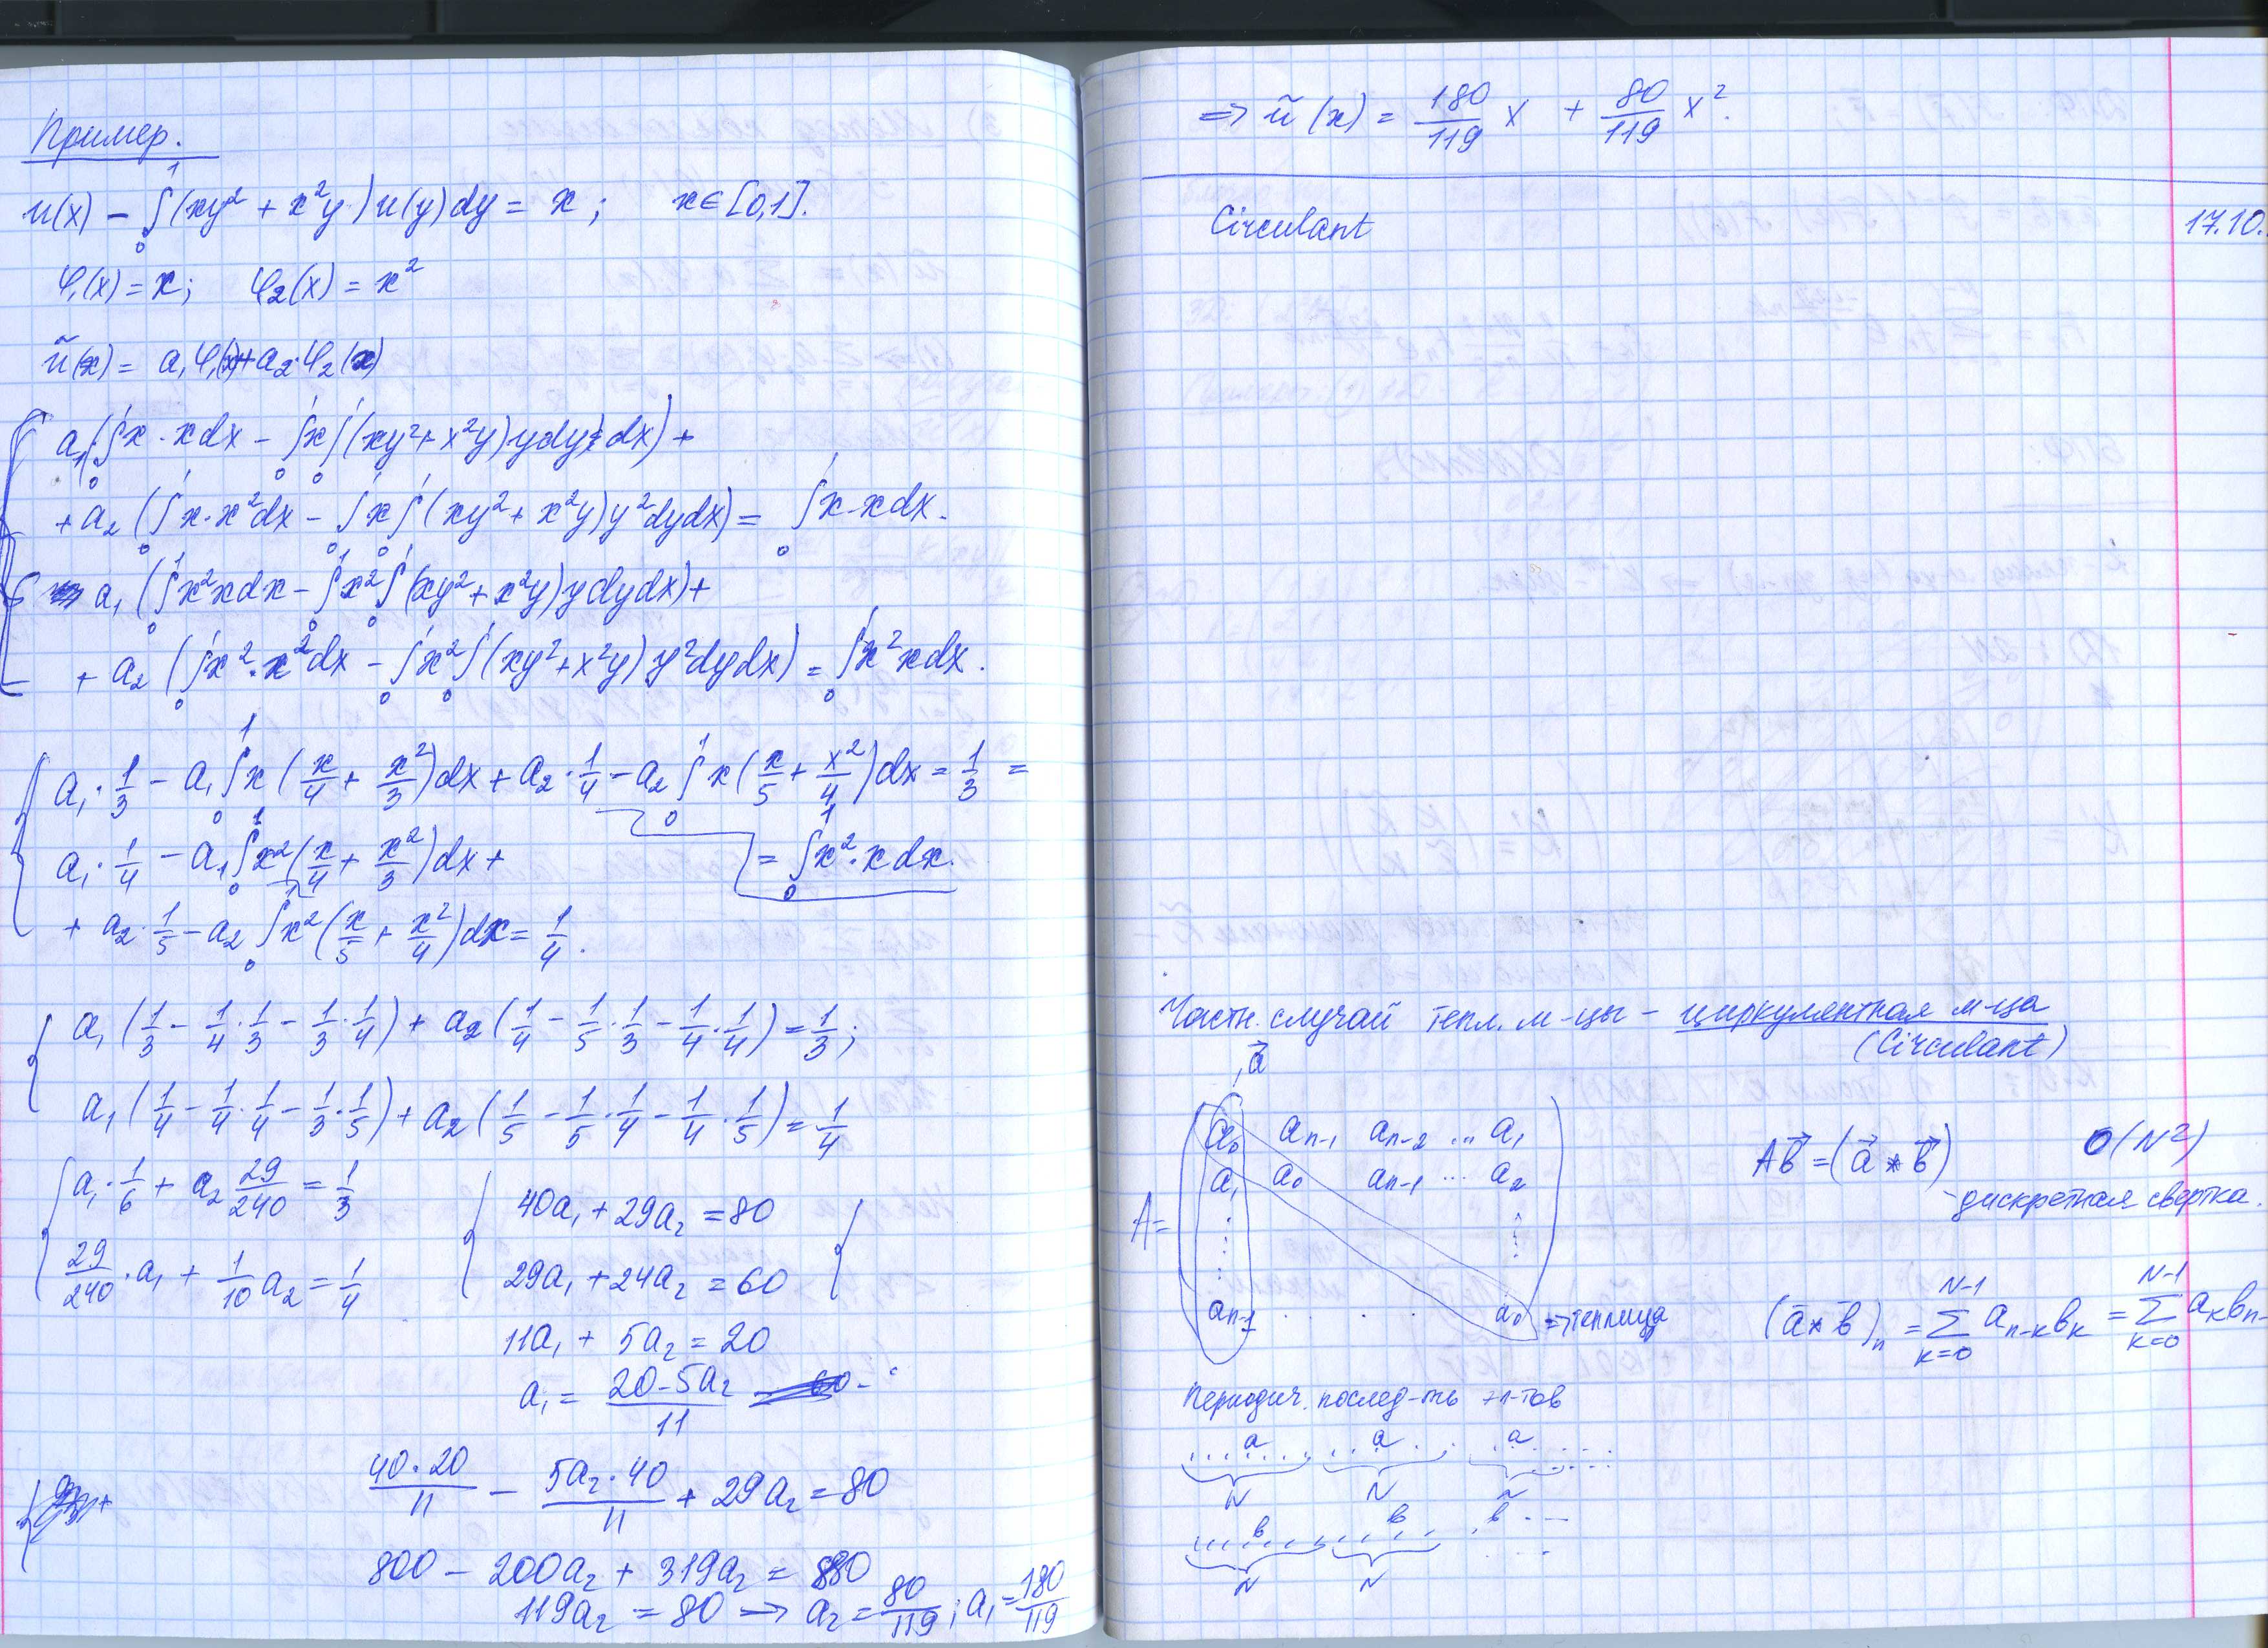 Пример.
u(x) − ∫₀¹(xy² + x²y)u(y)dy = x; x∈[0,1].
φ₁(x) = x; φ₂(x) = x²
ũ(x) = a₁φ₁(x)+a₂·φ₂(x)
a₁(∫₀¹x·xdx − ∫₀¹x∫₀¹(xy²+x²y)ydydx)+
+a₂(∫₀¹x·x²dx − ∫₀¹x∫₀¹(xy²+x²y)y²dydx) = ∫₀¹x·xdx.
a₁(∫₀¹x²xdx − ∫₀¹x²∫₀¹(xy²+x²y)ydydx)+
+ a₂(∫₀¹x²·x²dx − ∫₀¹x²∫₀¹(xy²+x²y)y²dydx) = ∫₀¹x²xdx.
a₁·1/3 − a₁∫₀¹x(x/4 + x²/3)dx + a₂·1/4 − a₂∫₀¹x(x/5 + x²/4)dx = 1/3 =
a₁·1/4 − a₁∫₀¹x²(x/4 + x²/3)dx + = ∫₀¹x²·xdx.
+ a₂·1/5 − a₂∫₀¹x²(x/5 + x²/4)dx = 1/4.
a₁(1/3 − 1/4·1/3 − 1/3·1/4) + a₂(1/4 − 1/5·1/3 − 1/4·1/4) = 1/3;
a₁(1/4 − 1/4·1/4 − 1/3·1/5) + a₂(1/5 − 1/5·1/4 − 1/4·1/5) = 1/4
a₁·1/6 + a₂ 29/240 = 1/3
29/240·a₁ + 1/10 a₂ = 1/4
40a₁+29a₂=80
29a₁+24a₂=60
11a₁ + 5a₂ = 20
a₁ = (20−5a₂)/11
40·20/11 − 5a₂·40/11 + 29a₂ = 80
800 − 200a₂ + 319a₂ = 880
119a₂ = 80 → a₂ = 80/119; a₁ = 180/119
⇒ ũ(x) = 180/119 x + 80/119 x².
Circulant 17.10.
Частн. случай тепл. м-цы − циркулянтная м-ца
(Circulant)
a⃗
A=
a₀ aₙ₋₁ aₙ₋₂ ... a₁
a₁ a₀ aₙ₋₁ ... a₂
aₙ₋₁ . . . a₀ ⇒ теплица
Ab⃗ = (a⃗ * b⃗) O(N²)
− дискретная свертка.
(a⃗ * b⃗)ₙ = ∑ₖ₌₀ᴺ⁻¹ aₙ₋ₖbₖ = ∑ₖ₌₀ᴺ⁻¹ aₖbₙ₋
Периодич. послед-ть эл-тов
a a a
N N N
b b b
N N